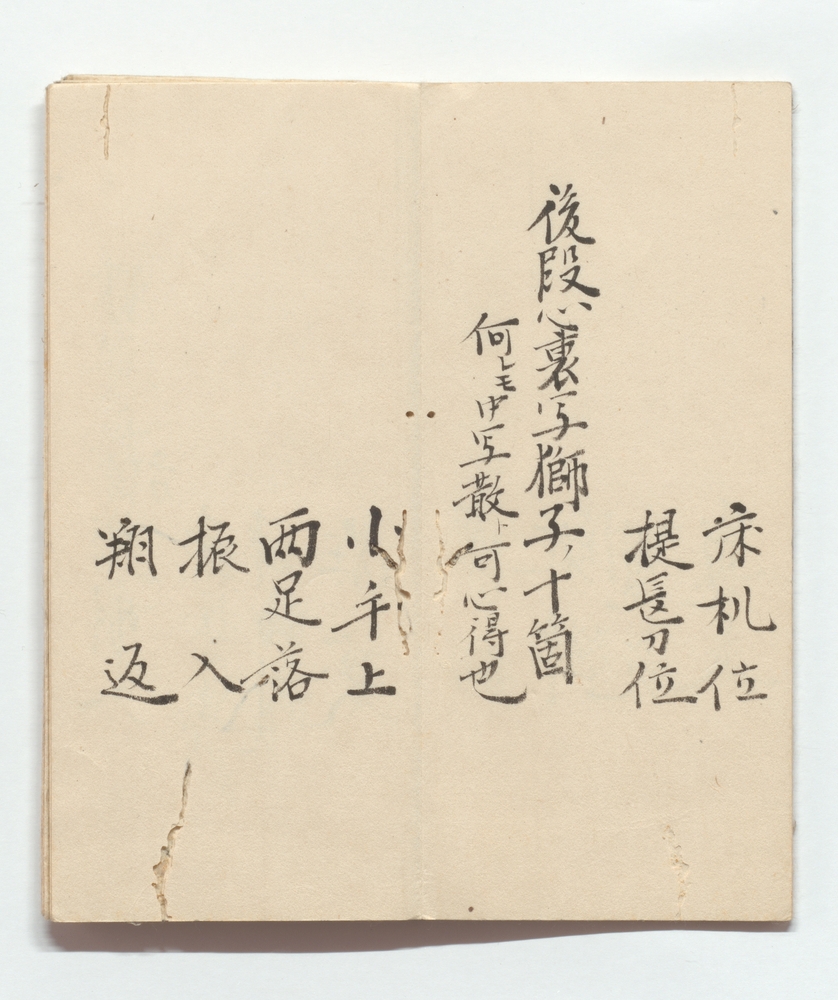 床机位
提長刀位
後段心裏写獅子ノ十箇
何レモ中写散ト可心得也
小手上
両足落
振入
翔返